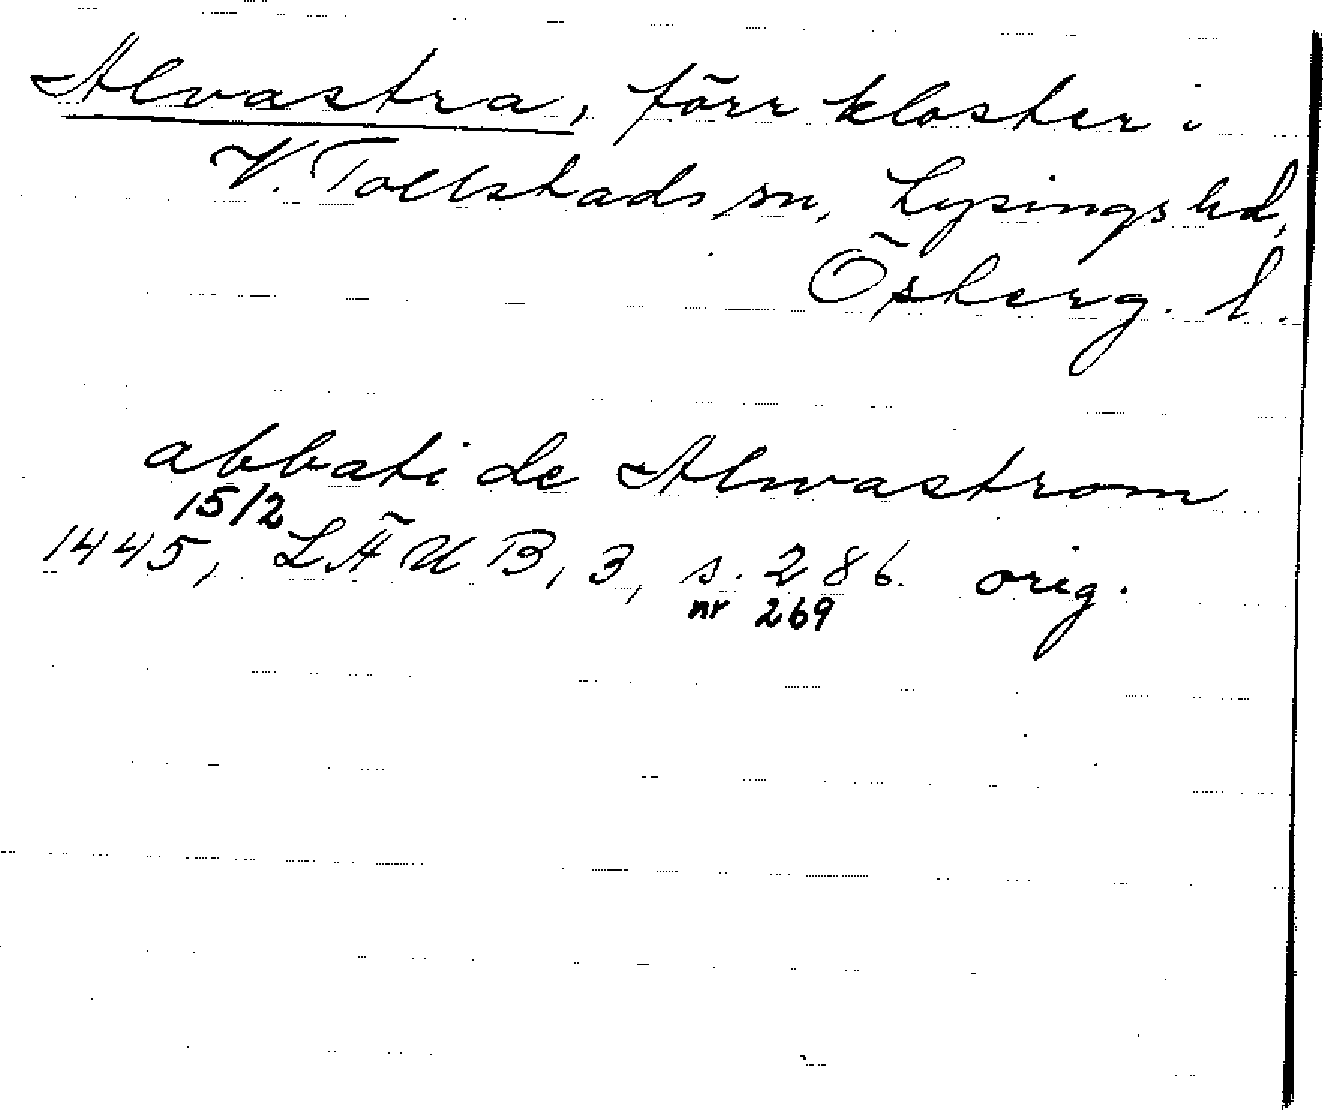 Alvastra, förr kloster i
V. Tollstads sn, Lysings hd,
Östergl. l.
abbati de Alwastrom
15/2
1445, LÄUB, 3, s. 286. orig.
nr 269